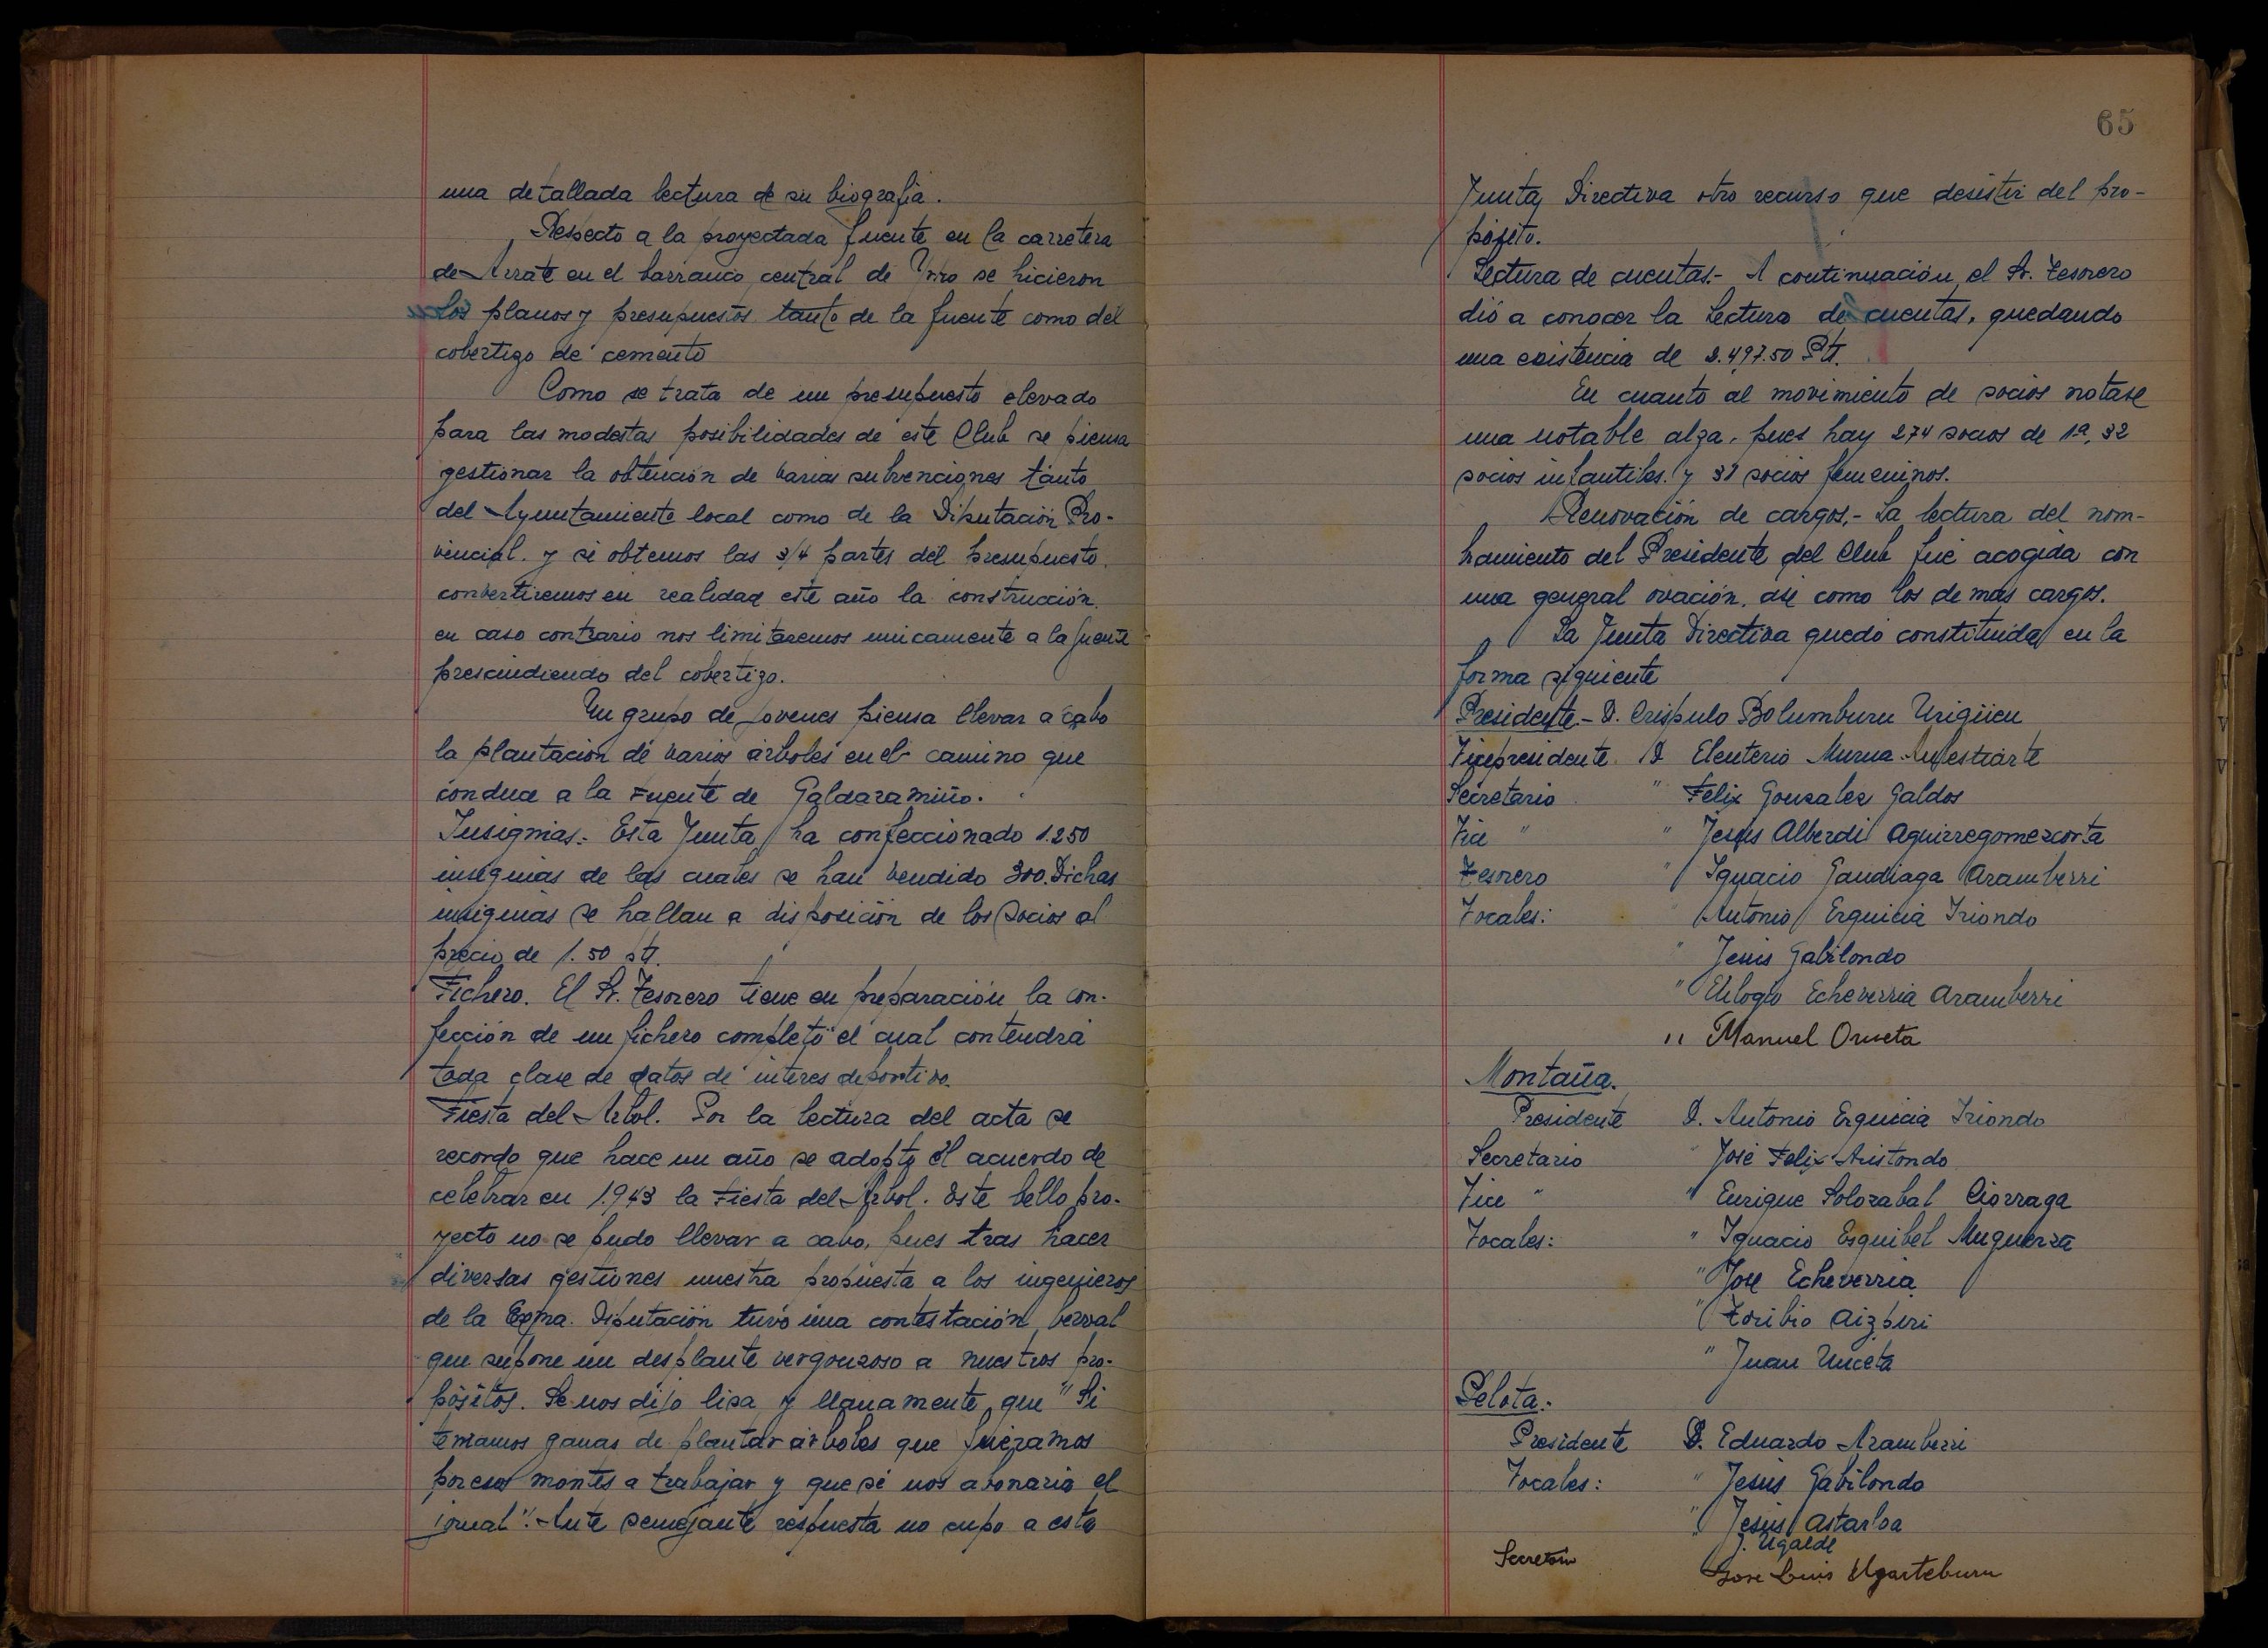 una detallada lectura de su biografia.
Respecto a la proyectada fuente en la carretera
de Arrate en el barranco central de se hicieron
los planos y presupuestos tanto de la fuente como del
cobertizo de cemento
Como se trata de un presupuesto elevado
para las modestas posibilidades de este Club se piensa
gestionar la obtención de varias subvenciones tanto
del Ayuntamiento local como de la Diputación Pro-
vincial. y si obtemos las 3/4 partes del presupuesto.
convertiremos en realidad este año la construcción.
en caso contrario nos limitaremos unicamente a la fuente
prescindiendo del cobertizo.
Un grupo de jovenes piensa llevar a cabo
la plantación de varios árboles en el camino que
conduce a la Fuente de Galdaramiño.
Insignias.- Esta Junta ha confeccionado 1.250
insignias de las cuales se han vendido 300. Dichas
insignias se hallan a disposición de los socios al
precio de 1.50 pts.
Fichero. El Sr. Tesorero tiene en preparación la con-
fección de un fichero completo el cual contendrá
toda clase de datos de interes deportivo.
Fiesta del Arbol. Por la lectura del acta se
recordo que hace un año se adopto el acuerdo de
celebrar en 1.943 la Fiesta del Arbol. Este bello pro-
yecto no se pudo llevar a cabo, pues tras hacer
diversas gestiones nuestra propuesta a los ingenieros
de la Exma. Diputación tuvo una contestación verval
que supone un desplante vergonzoso a nuestros pro-
pósitos. Se nos dijo lisa y llanamente que "Si
teniamos ganas de plantar árboles que fuéramos
por esos montes a trabajar y que se nos abonaria el
jornal". Ante semejante respuesta no cupo a esta
65
Junta Directiva otro recurso que desistir del pro-
pósito.
Lectura de cuentas.- A continuación el Sr. Tesorero
dió a conocer la Lectura de cuentas, quedando
una existencia de 2.497.50 Pts.
En cuanto al movimiento de socios notase
una notable alza, pues hay 274 socios de 1ª, 32
socios infantiles y 31 socios femeninos.
Renovación de cargos.- La lectura del nom-
bramiento del Presidente del Club fue acogida con
una general ovación, asi como los demás cargos.
La Junta Directiva quedó constituida en la
forma siguiente
Presidente.- D. Crispulo Bolumburu Urigüen
Vicepresidente D Eleuterio Murua
Secretario " Felix Gonzalez Galdos
Vice " " Jesus Alberdi Aguirregomezcorta
Tesorero " Ignacio Gandiaga Aramberri
Vocales: " Antonio Erquicia Iriondo
" Jesus Gabilondo
" Eulogio Echeverria Aramberri
" Manuel Orueta
Montaña.
Presidente D. Antonio Erquicia Iriondo
Secretario " José Felix Aristondo
Vice " " Enrique Solozabal Ciorraga
Vocales: " Ignacio Esquibel Muguerza
" Jose Echeverria
" Toribio Aizpiri
" Juan Unceta
Pelota.-
Presidente D. Eduardo Aramberri
Vocales: " Jesus Gabilondo
" Jesus Astarloa
J. Ugalde
Secretario Jose Luis Ugarteburu